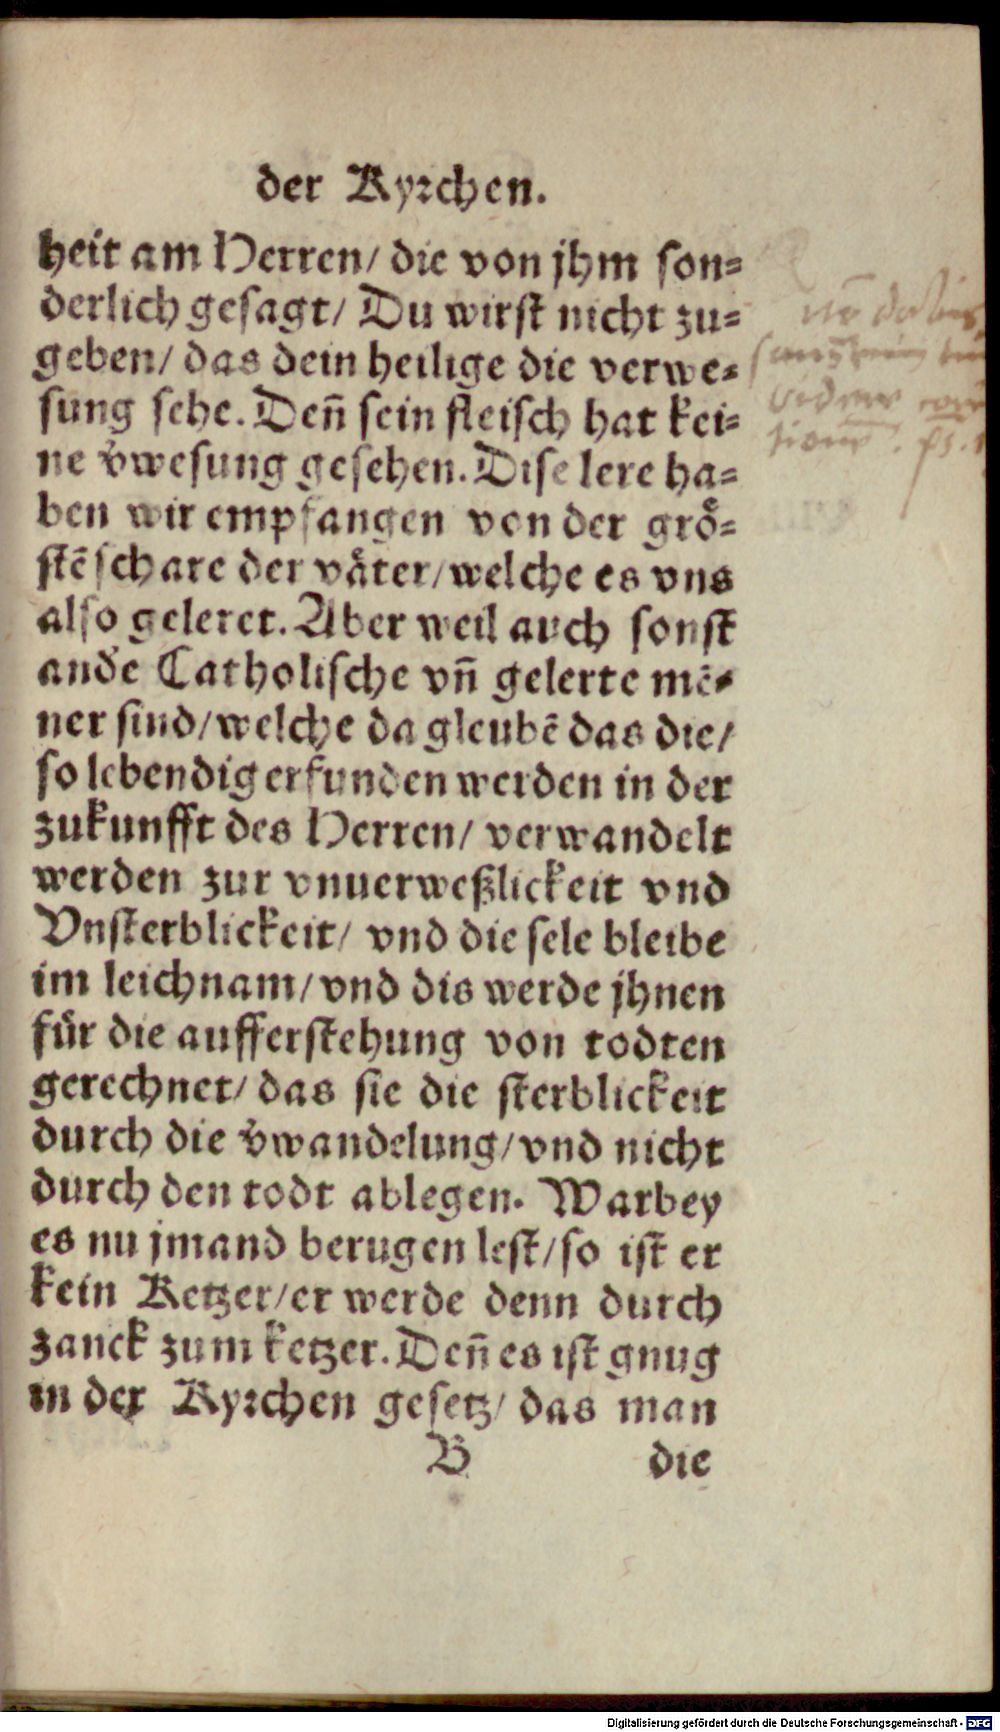 der Kyrchen.
heit am Herren/ die von jhm son=
derlich gesagt/ Du wirst nicht zu=
geben/ das dein heilige die verwe=
sung sehe. Deñ sein fleisch hat kei=
ne v̈wesung gesehen. Dise lere ha=
ben wir empfangen von der grö=
stẽ schare der väter/ welche es vns
also geleret. Aber weil auch sonst
anďe Catholische vñ gelerte mẽ=
ner sind/ welche da gleubẽ das die/
so lebendig erfunden werden in der
zukunfft des Herren/ verwandelt
werden zur vnuerweßlickeit vnd
Vnsterblickeit/ vnd die sele bleibe
im leichnam/ vnd dis werde jhnen
für die aufferstehung von todten
gerechnet/ das sie die sterblickeit
durch die v̈wandelung/ vnd nicht
durch den todt ablegen. Warbey
es nu jmand berugen lest/ so ist er
kein Ketzer/ er werde denn durch
zanck zum ketzer. Deñ es ist gnug
in der Kyrchen gesetz/ das man
B die
nõ dabis
videre
tionẽ. ps. 1
Digitalisierung gefördert durch die Deutsche Forschungsgemeinschaft - DFG